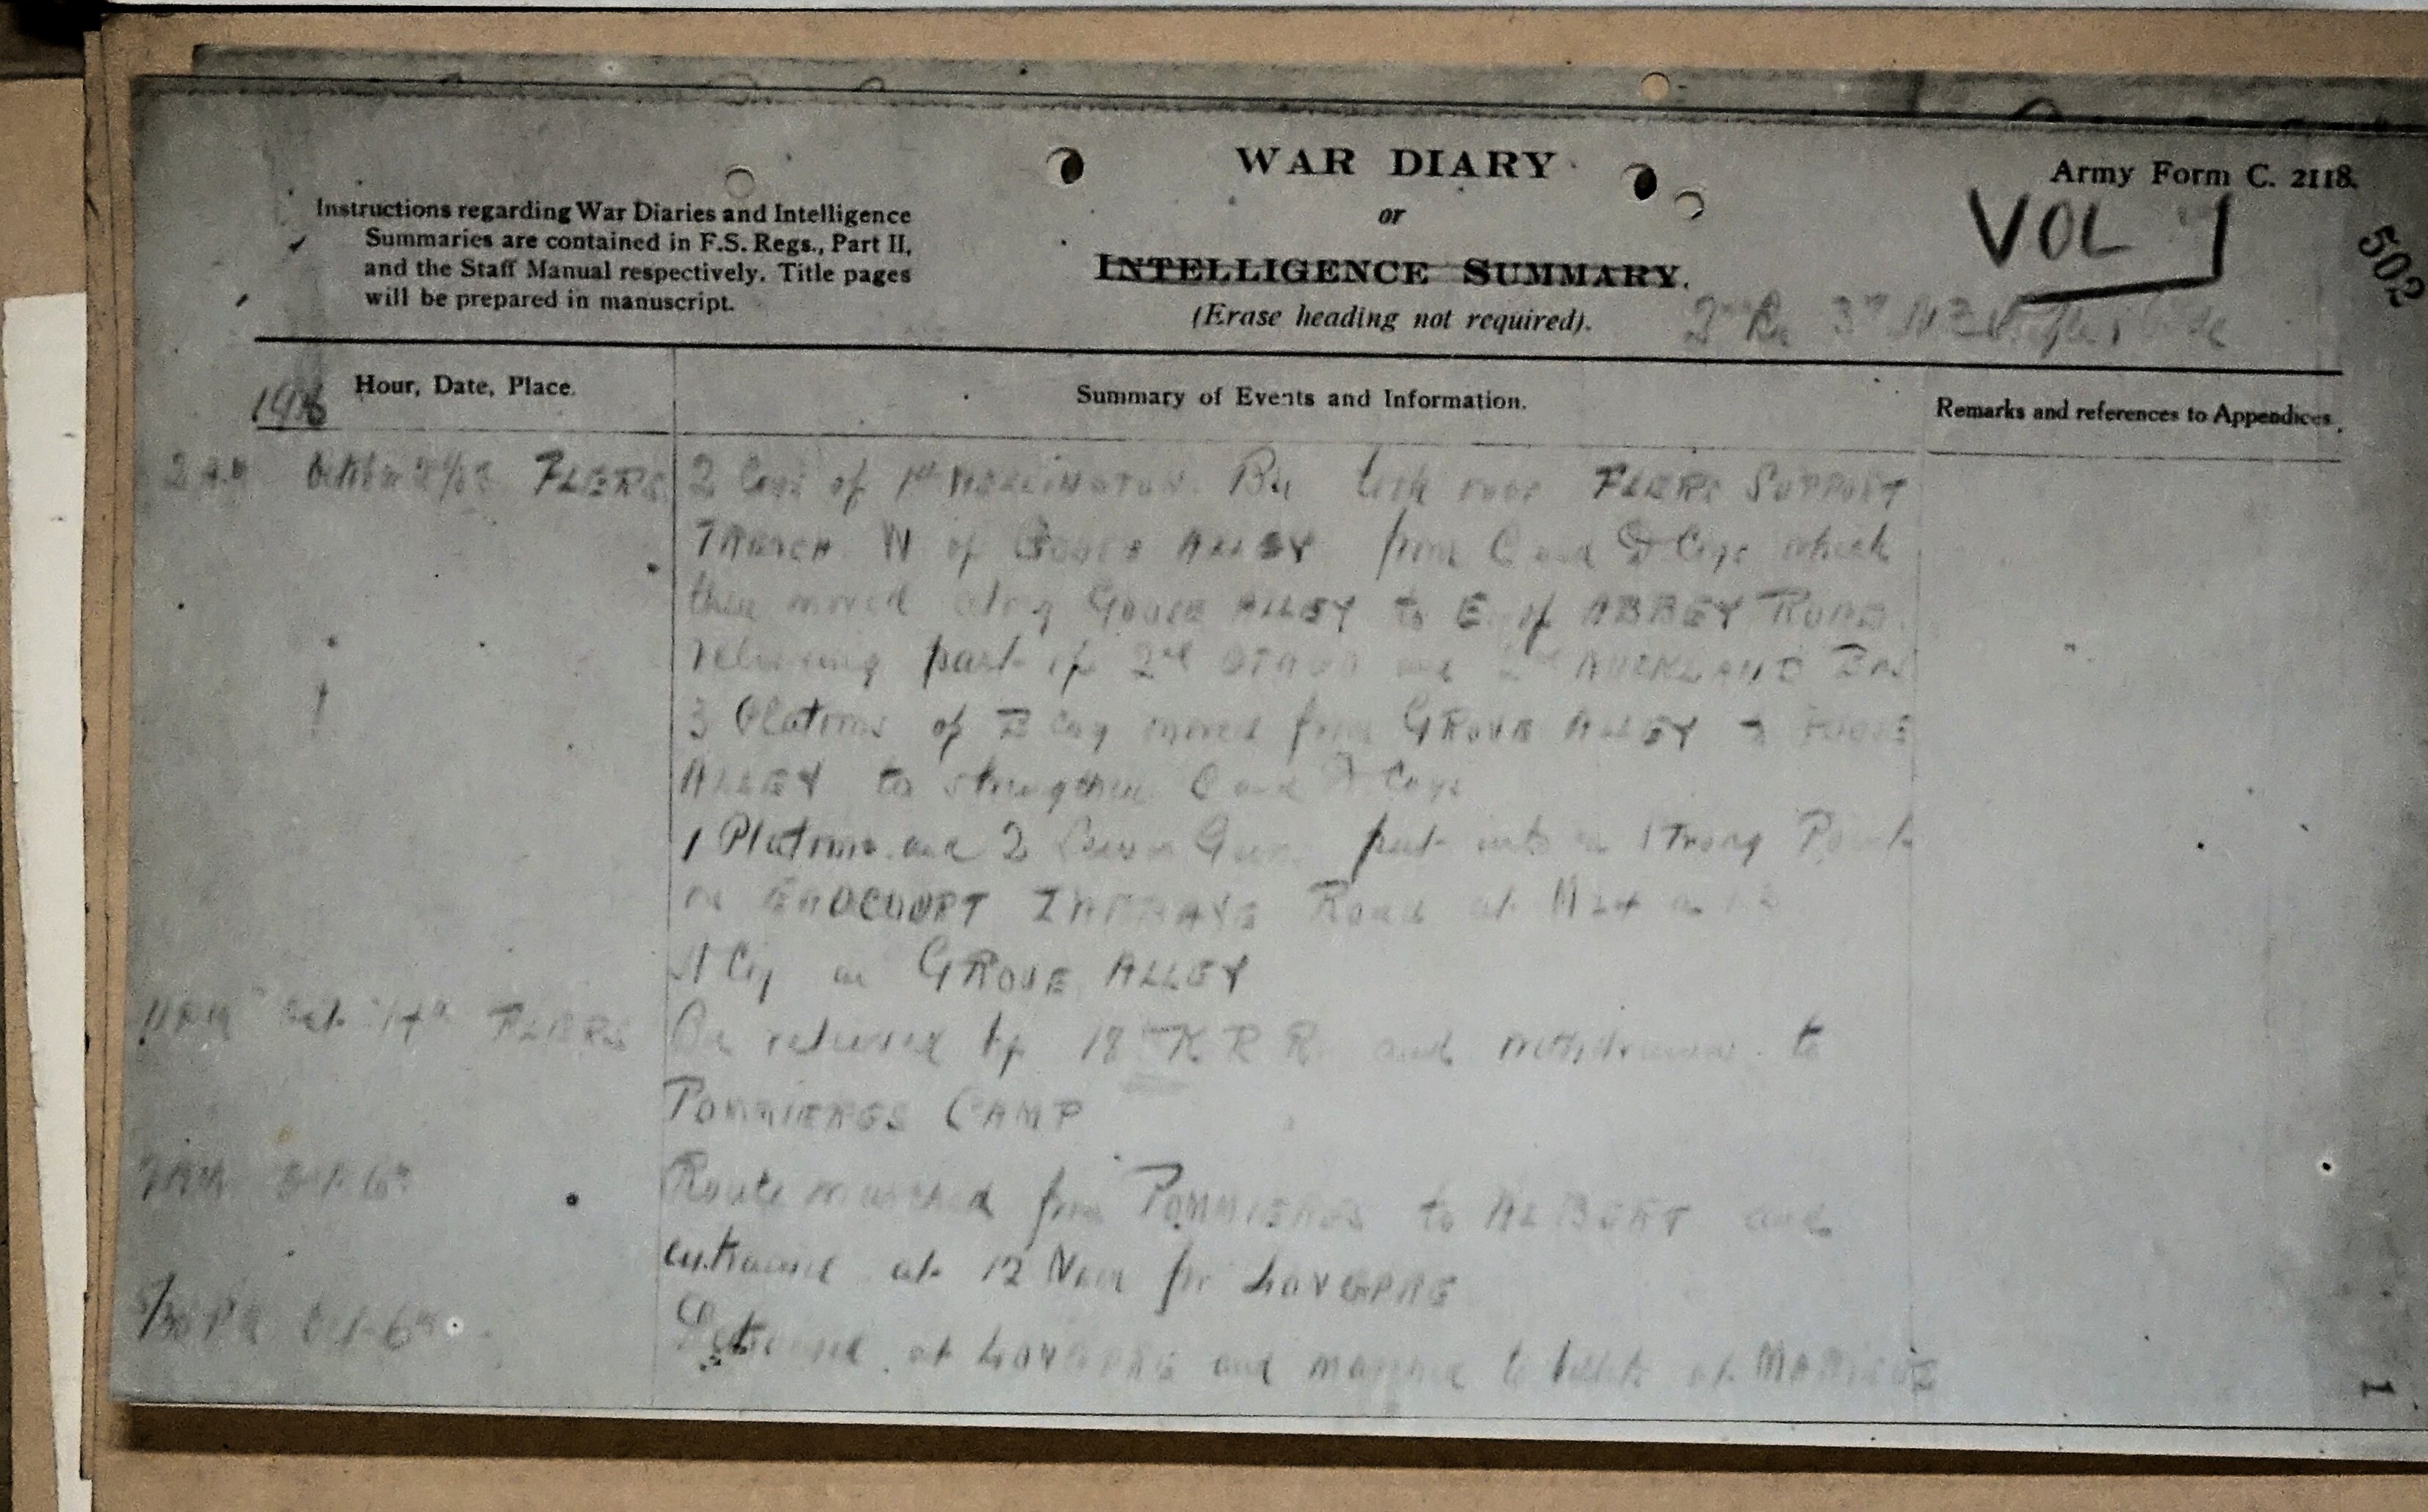 WAR DIARY
or
INTELLIGENCE SUMMARY.
(Erase heading not required).
Instructions regarding War Diaries and Intelligence
Summaries are contained in F.S. Regs., Part II,
and the Staff Manual respectively. Title pages
will be prepared in manuscript.
Army Form C. 2118.
VOL 7
502
3rd N Z
1916
Hour, Date, Place.
Summary of Events and Information.
Remarks and references to Appendices.
FLERS 2 Coys of 1st WELLINGTON Bn took over FLERS SUPPORT
TRENCH N of GOOSE ALLEY from C and D Coys which
then moved along GOOSE ALLEY to E of ABBEY ROAD
relieving part of 2nd OTAGO and 2nd AUCKLAND Bns
3 Platoons of B Coy moved from GROVE ALLEY to GOOSE
ALLEY to strengthen C and D Coys
1 Platoon and 2 Lewis Guns put into a Strong Point
on EAUCOURT Road at M 24
A Coy in GROVE ALLEY
FLERS Bn relieved by 18th K R R and withdrawn to
POMMIERES CAMP
Route marched from POMMIERES to ALBERT and
entrained at 12 Noon for LONGPRE
5/30 PM Oct 6th Detrained at LONGPRE and marched to billets at
1